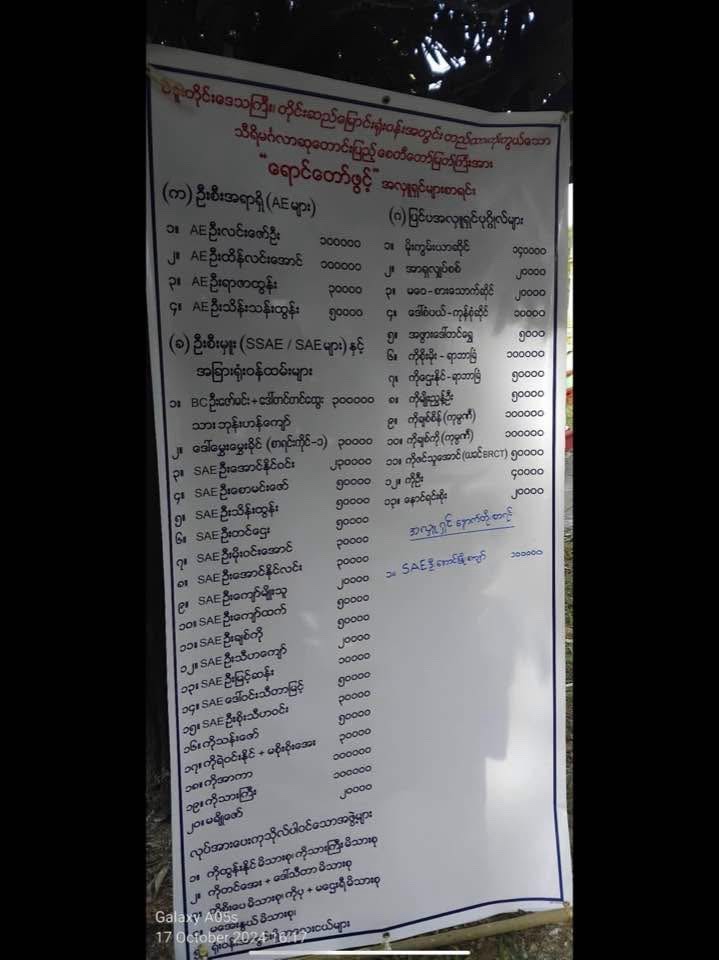 တိုင်းဒေသကြီး၊ တိုင်းဆည်မြောင်းရုံးဝန်းအတွင်း တည်ထားကိုးကွယ်သော
သီရိမင်္ဂလာဆုတောင်းပြည့် စေတီတော်မြတ်ကြီးအား
"ရောင်တော်ဖွင့်" အလှူရှင်များစာရင်း
(က) ဦးစီးအရာရှိ (AE များ)
၁။ AE ဦးလင်းဇော်ဦး ၁၀၀၀၀၀
၂။ AE ဦးထိန်လင်းအောင် ၁၀၀၀၀၀
၃။ AE ဦးရာဇာထွန်း ၃၀၀၀၀
၄။ AE ဦးသိန်းသန်းထွန်း ၅၀၀၀၀
(ခ) ဦးစီးမှူး (SSAE / SAE များ) နှင့်
အခြားရုံးဝန်ထမ်းများ
၁။ BC ဦးဇော်မင်း + ဒေါ်တင်တင်ထွေး ၃၀၀၀၀၀
သား ဘုန်းဟန်ကျော်
၂။ ဒေါ်မွှေးမွှေးခိုင် (စာရင်းကိုင်-၁) ၃၀၀၀၀
၃။ SAE ဦးအောင်နိုင်ဝင်း ၂၃၀၀၀၀
၄။ SAE ဦးစောမင်းဇော် ၅၀၀၀၀
၅။ SAE ဦးသိန်းထွန်း ၅၀၀၀၀
၆။ SAE ဦးတင်ငွေး ၅၀၀၀၀
၇။ SAE ဦးမိုးဝင်းအောင် ၃၀၀၀၀
၈။ SAE ဦးအောင်နိုင်လင်း ၃၀၀၀၀
၉။ SAE ဦးကျော်မျိုးသူ ၂၀၀၀၀
၁၀။ SAE ဦးကျော်ထက် ၅၀၀၀၀
၁၁။ SAE ဦးချစ်ကို ၅၀၀၀၀
၁၂။ SAE ဦးသီဟကျော် ၂၀၀၀၀
၁၃။ SAE ဦးမြင့်ဆန်း ၁၀၀၀၀
၁၄။ SAE ဒေါ်ဝင်းသီတာမြင့် ၅၀၀၀၀
၁၅။ SAE ဦးစိုးသီဟဝင်း ၃၀၀၀၀
၁၆။ ကိုသန်းဇော် ၅၀၀၀၀
၁၇။ ကိုရဲဝင်းနိုင် + မစိုးစိုးအေး ၃၀၀၀၀
၁၈။ ကိုအာကာ ၁၀၀၀၀၀
၁၉။ ကိုသားကြီး ၁၀၀၀၀၀
၂၀။ မချိုဇော် ၂၀၀၀၀
လုပ်အားပေးကုသိုလ်ပါဝင်သောအဖွဲ့များ
၁။ ကိုထွန်းနိုင် မိသားစု၊ ကိုသားကြီး မိသားစု
၂။ ကိုတင်အေး + ဒေါ်သီတာ မိသားစု
မိသားစု၊ ကိုပု + မငွေးရီ မိသားစု
မအေးနွယ် မိသားစု၊
(ဂ) ပြင်ပအလှူရှင်ပုဂ္ဂိုလ်များ
၁။ မိုးကွမ်းယာဆိုင် ၁၄၀၀၀၀
၂။ အာရှလျှပ်စစ် ၂၀၀၀၀
၃။ မဝေ - စားသောက်ဆိုင် ၂၀၀၀၀
၄။ ဒေါ်စံပယ် - ကုန်စုံဆိုင် ၁၀၀၀၀
၅။ အဖွားဒေါ်တင်ရွှေ ၅၀၀၀
၆။ ကိုစိုးမိုး - ရာဘာခြံ ၁၀၀၀၀၀
၇။ ကိုငွေးနိုင် - ရာဘာခြံ ၅၀၀၀၀
၈။ ကိုမျိုးညွန့်ဦး ၅၀၀၀၀
၉။ ကိုချစ်စိန် (ကုမ္ပဏီ) ၁၀၀၀၀၀
၁၀။ ကိုချစ်ကို (ကုမ္ပဏီ) ၁၀၀၀၀၀
၁၁။ ကိုဇင်သူအောင် (ယခင် BRCT) ၅၀၀၀၀
၁၂။ ကိုဦး ၄၀၀၀၀
၁၃။ နောင်ရင်းစိုး ၂၀၀၀၀
အလှူရှင် နောက်တိုးစာရင်း
၁။ SAE ဦး ၁၀၀၀၀၀
Galaxy A05s
17 October 2024 16:17